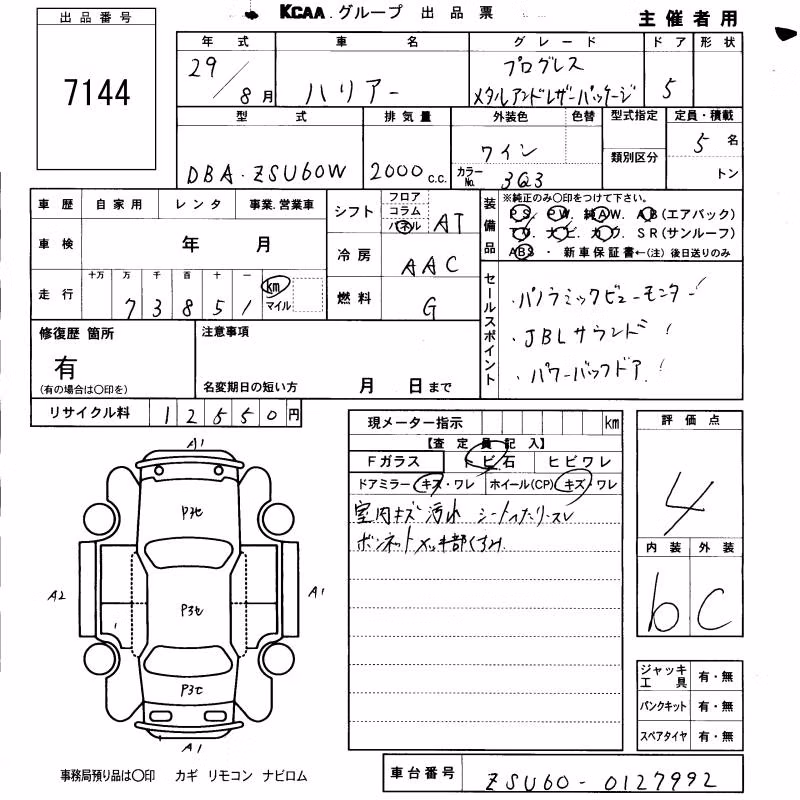 出品番号
7144
KCAA.グループ 出品票
主催者用
年式 車名 グレード ドア 形状
29/8月 ハリアー プログレス
メタルアンドレザーパッケージ 5
型式 排気量 外装色 色替 型式指定 定員・積載
DBA-ZSU60W 2000c.c. ワイン 類別区分 5名
カラーNo. 3Q3 トン
車歴 自家用 レンタ 事業.営業車
車検 年 月
走行 十万 万 千 百 十 一
73851 km マイル
シフト フロア コラム パネル AT
冷房 AAC
燃料 G
装備品
※純正のみ〇印をつけて下さい。
PS. PW. 純AW. AB(エアバック)
TV. ナビ. カワ. SR(サンルーフ)
ABS・ 新車保証書←(注) 後日送りのみ
セールスポイント
・パノラミックビューモニター!
・JBLサウンド!
・パワーバックドア!
修復歴 箇所
有
(有の場合は〇印を)
注意事項
名変期日の短い方 月 日まで
リサイクル料 12550円
現メーター指示 km
【査定員記入】
Fガラス トビ石 ヒビワレ
ドアミラー キズ・ワレ ホイール(CP) キズ・ワレ
室内キズ 汚れ シート
ボンネットメッキ部くすみ
評価点
4
内装 外装
b C
ジャッキ工具 有・無
パンクキット 有・無
スペアタイヤ 有・無
A1
A2
A1
A1
事務局預り品は〇印 カギ リモコン ナビロム
車台番号 ZSU60-0127992